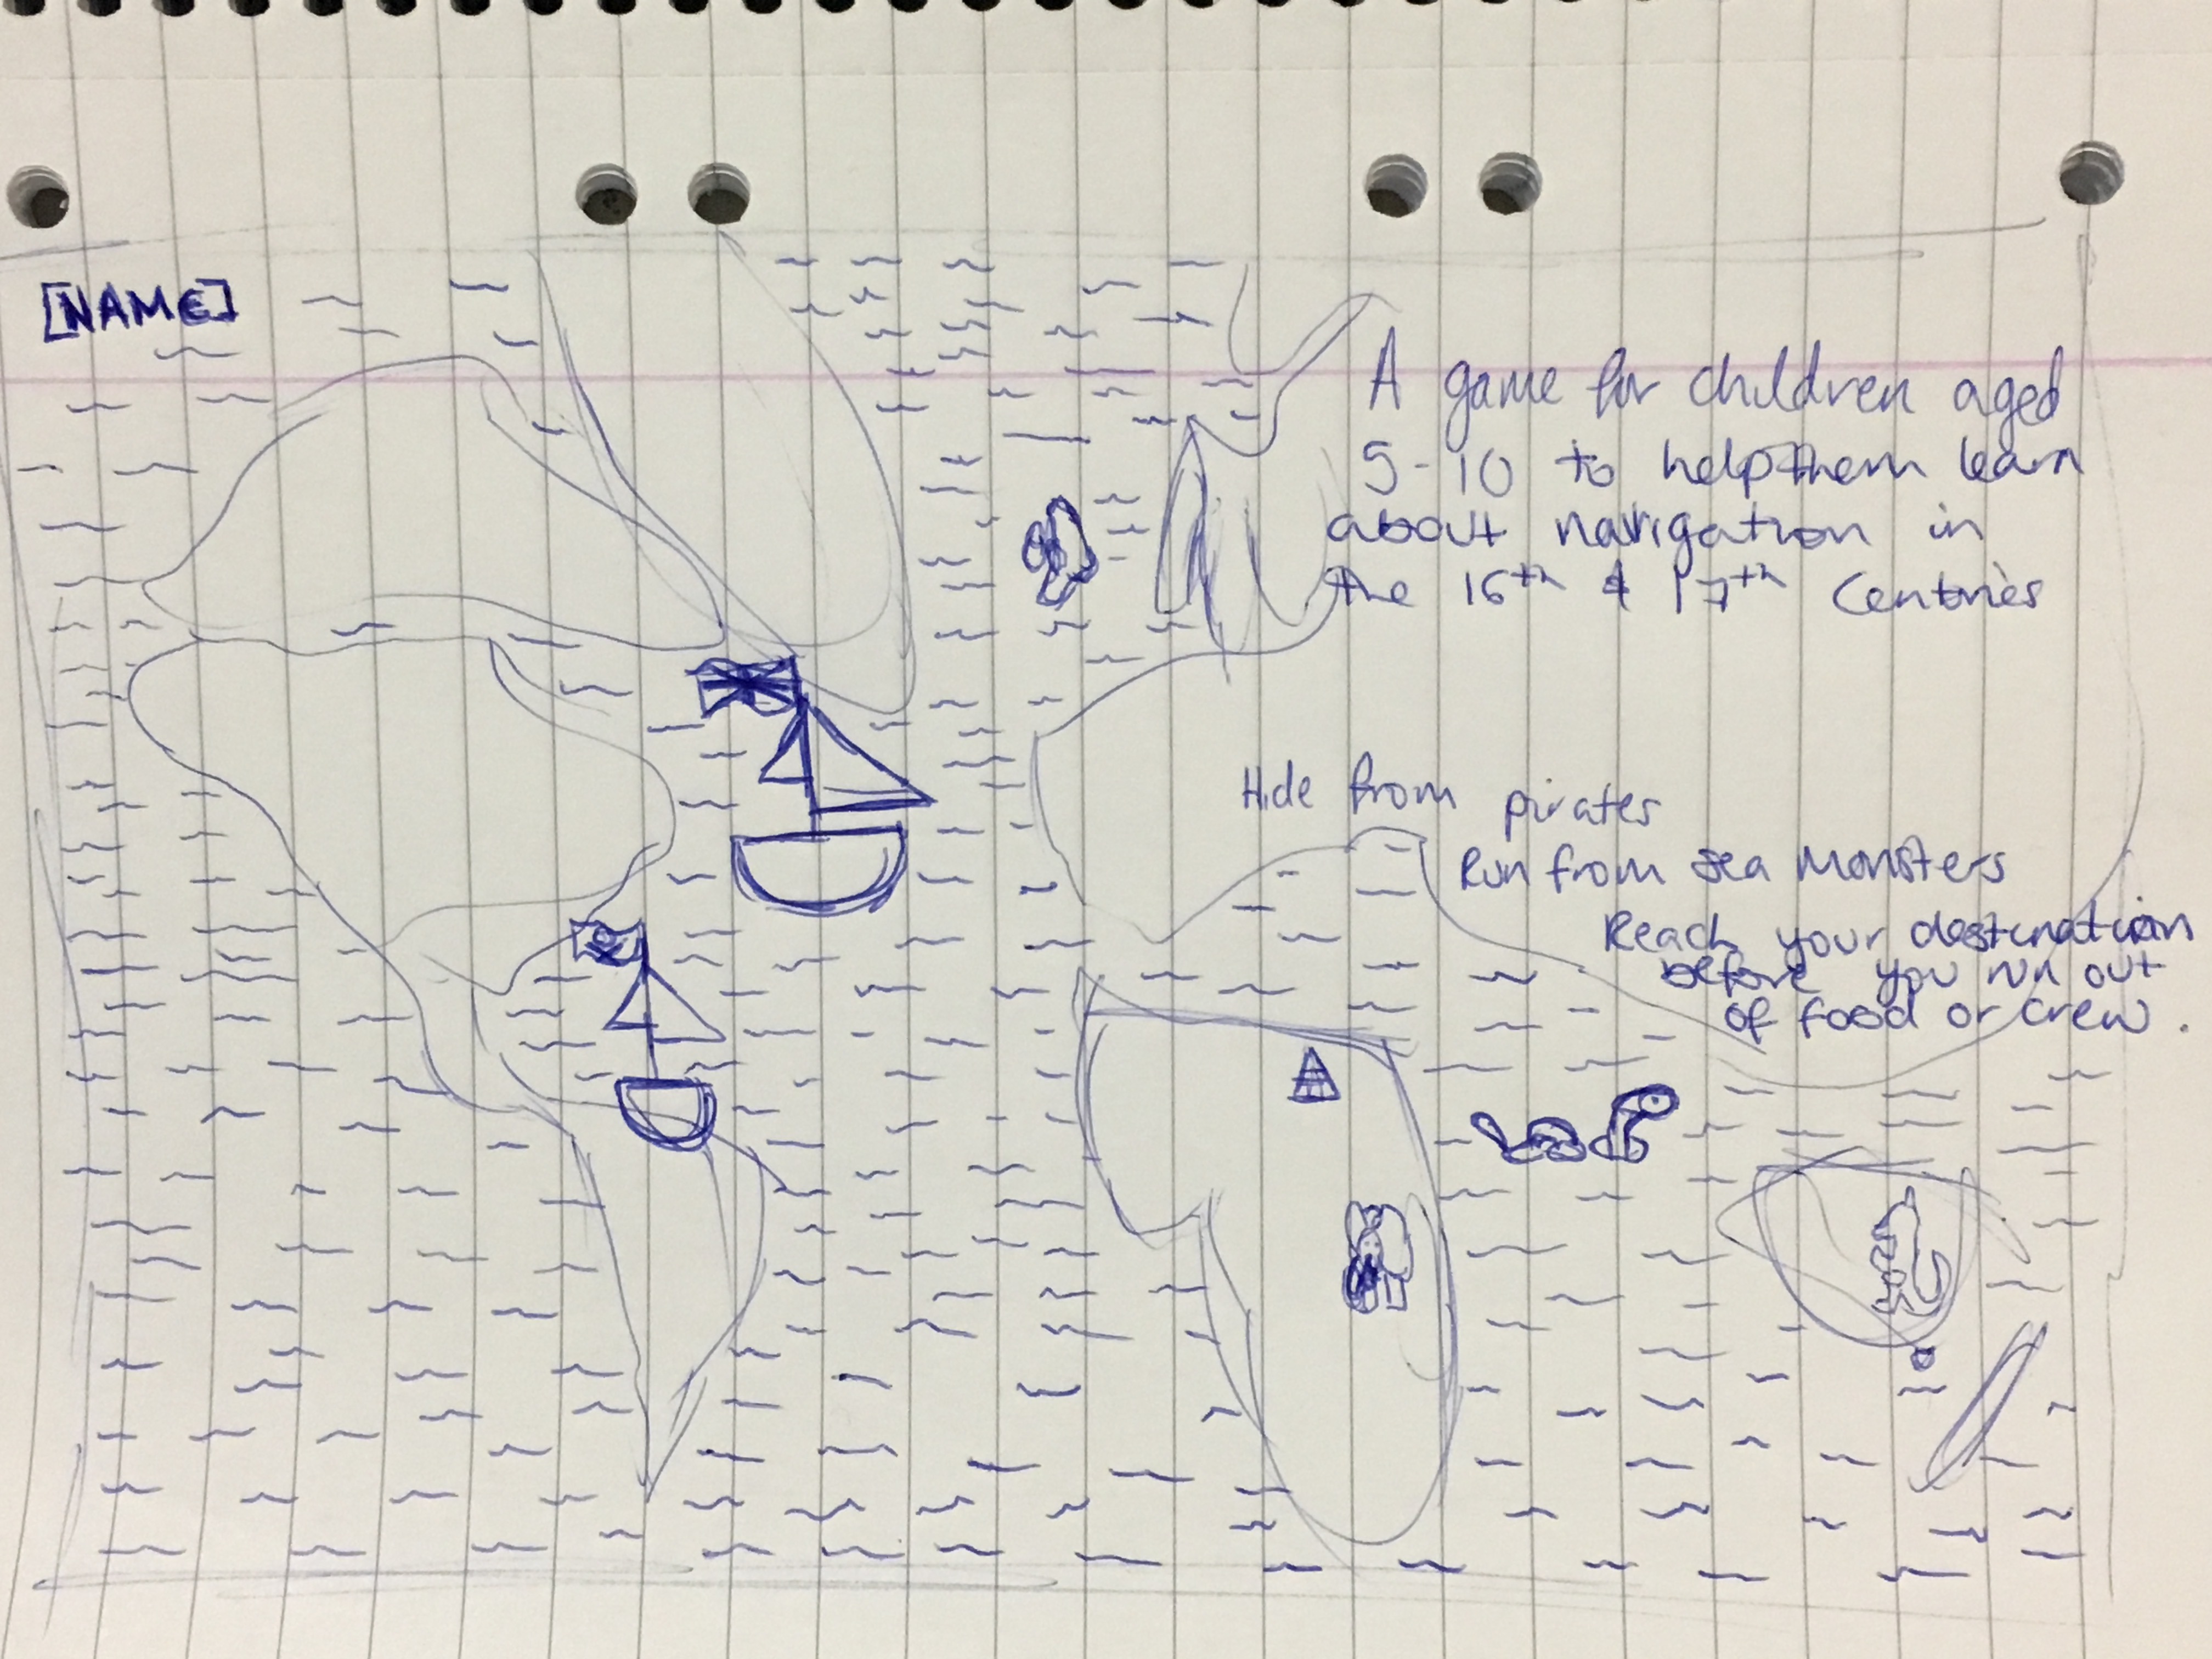 [NAME]
A game for children aged
5-10 to help them learn
about navigation in
the 16th & 17th Centuries
Hide from pirates
Run from sea Monsters
Reach your destination
before you run out
of food or crew.